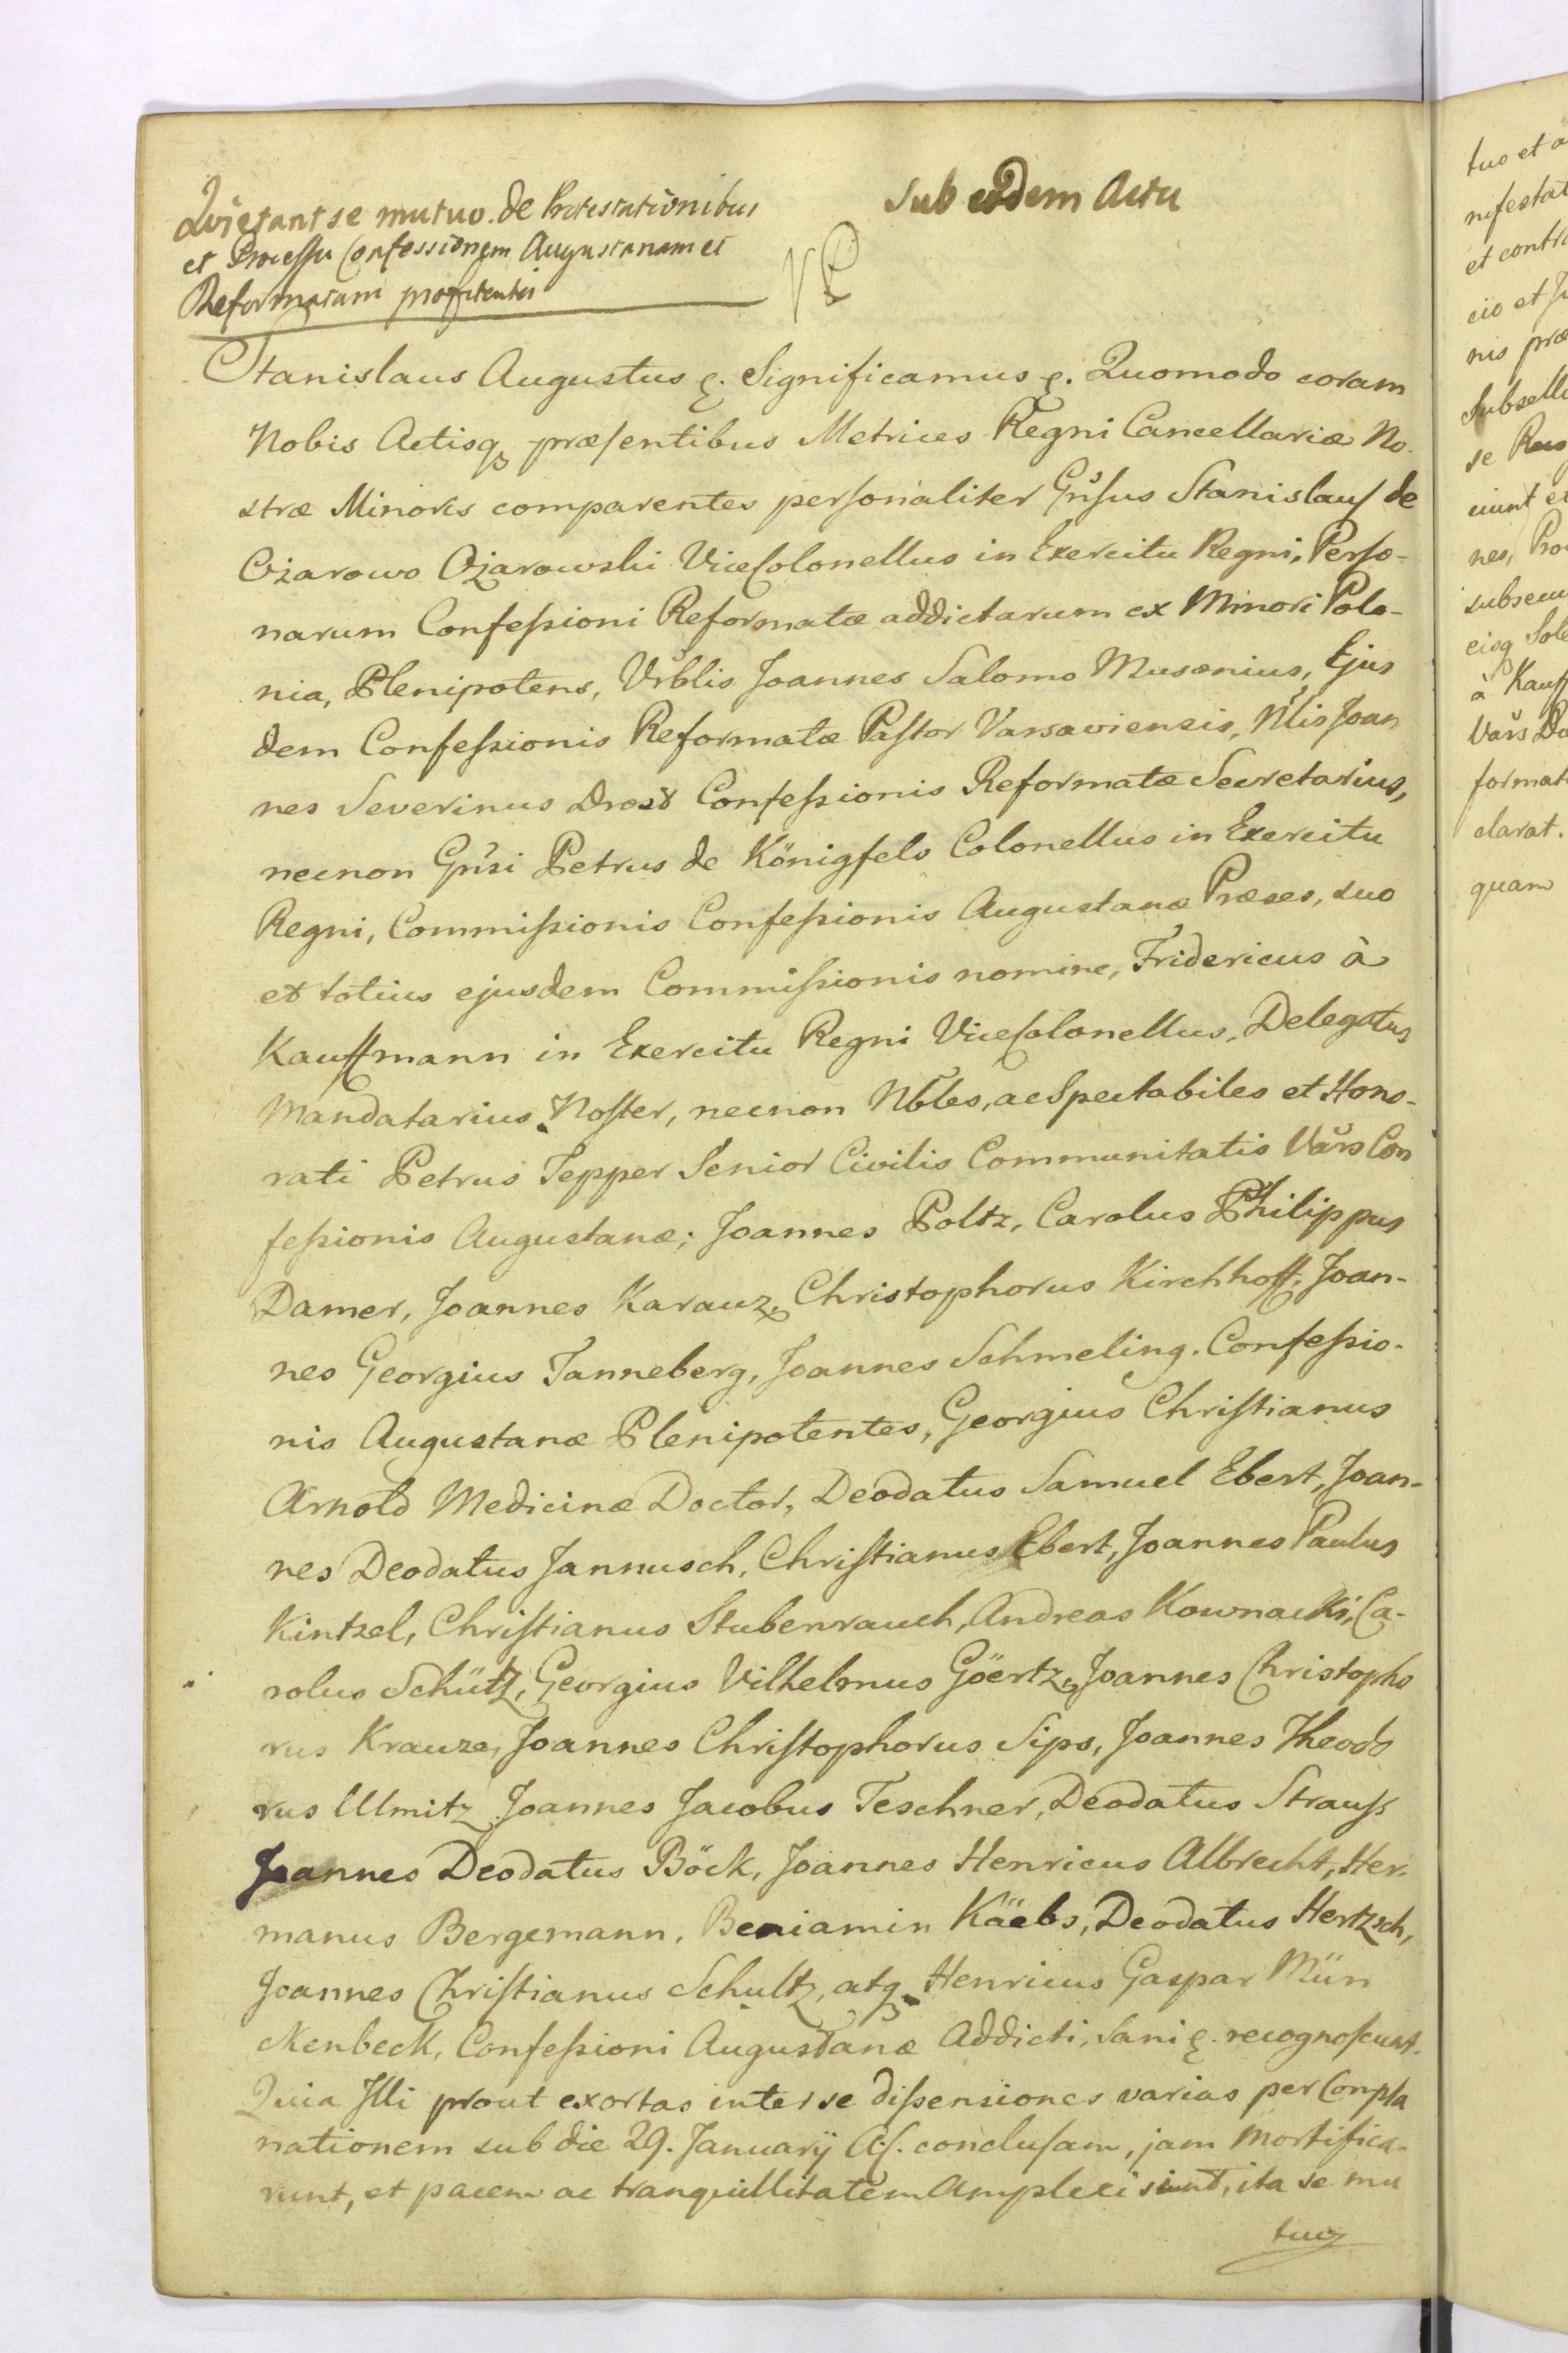 Quietant se mutuo de Protestationibus
et Processu Confessionem Augustanam et
Reformatam profitentes
Sub eodem Actu
Stanislaus Augustus ę. Significamus ę. Quomodo coram
Nobis Actisq præsentibus Metrices Regni Cancellariæ No-
stræ Minoris comparentes personaliter Gnsus Stanislaus de
Ożarowo Ożarowski ViceColonellus in Exercitu Regni, Perso-
narum Confessioni Reformatæ addictarum ex Minori Polo-
nia, Plenipotens, Vrblis Joannes Salomo Musonius, Ejus
dem Confessionis Reformatæ Pastor Varsaviensis, Nlis Joan
nes Severinus Drost Confessionis Reformatæ Secretarius,
necnon Gnsi Petrus de Königfels Colonellus in Exercitu
Regni, Commissionis Confessionis Augustanæ Præses, suo
et totius ejusdem Commissionis nomine, Fridericus à
Kauffmann in Exercitu Regni ViceColonellus, Delegatus
Mandatarius Noster, necnon Nbles, ac Spectabiles et Hono-
rati Petrus Tepper Senior Civilis Communitatis Vars Con
fessionis Augustanæ; Joannes Poltz, Carolus Philippus
Damer, Joannes Karauz, Christophorus Kirchhoff, Joan-
nes Georgius Tanneberg, Joannes Schmeling. Confessio-
nis Augustanæ Plenipotentes, Georgius Christianus
Arnold Medicinæ Doctor, Deodatus Samuel Ebert, Joan-
nes Deodatus Jannusch, Christianus Ebert, Joannes Paulus
Kintzel, Christianus Stubenrauch, Andreas Kownacki, Ca-
rolus Schütz, Georgius Vilhelmus Göertz, Joannes Christopho
rus Krauze, Joannes Christophorus Sips, Joannes Theodo
rus Ulmitz Joannes Jacobus Teschner, Deodatus Strauss
Joannes Deodatus Böck, Joannes Henricus Albrecht, Her-
manus Bergemann, Beniamin Käebs, Deodatus Hertzsch,
Joannes Christianus Schultz, atq Henricus Gaspar Mün
ckenbeck, Confessioni Augustanæ Addicti, Sani ę. recognoscunt.
Quia Illi prout exortas inter se dissensiones varias per Compla
nationem sub die 29. Januarij A.f. conclusam, jam mortifica-
runt, et pacem ac tranquillitatem Amplexi sunt, ita se mu
tuo
tuo et a
nifestat
et contra
cio et
nis præ
Subselli
se
ciunt et
nes, Pro
subsecu
eisq Sole
à Kauff
Vars De
format
clarat.
quam